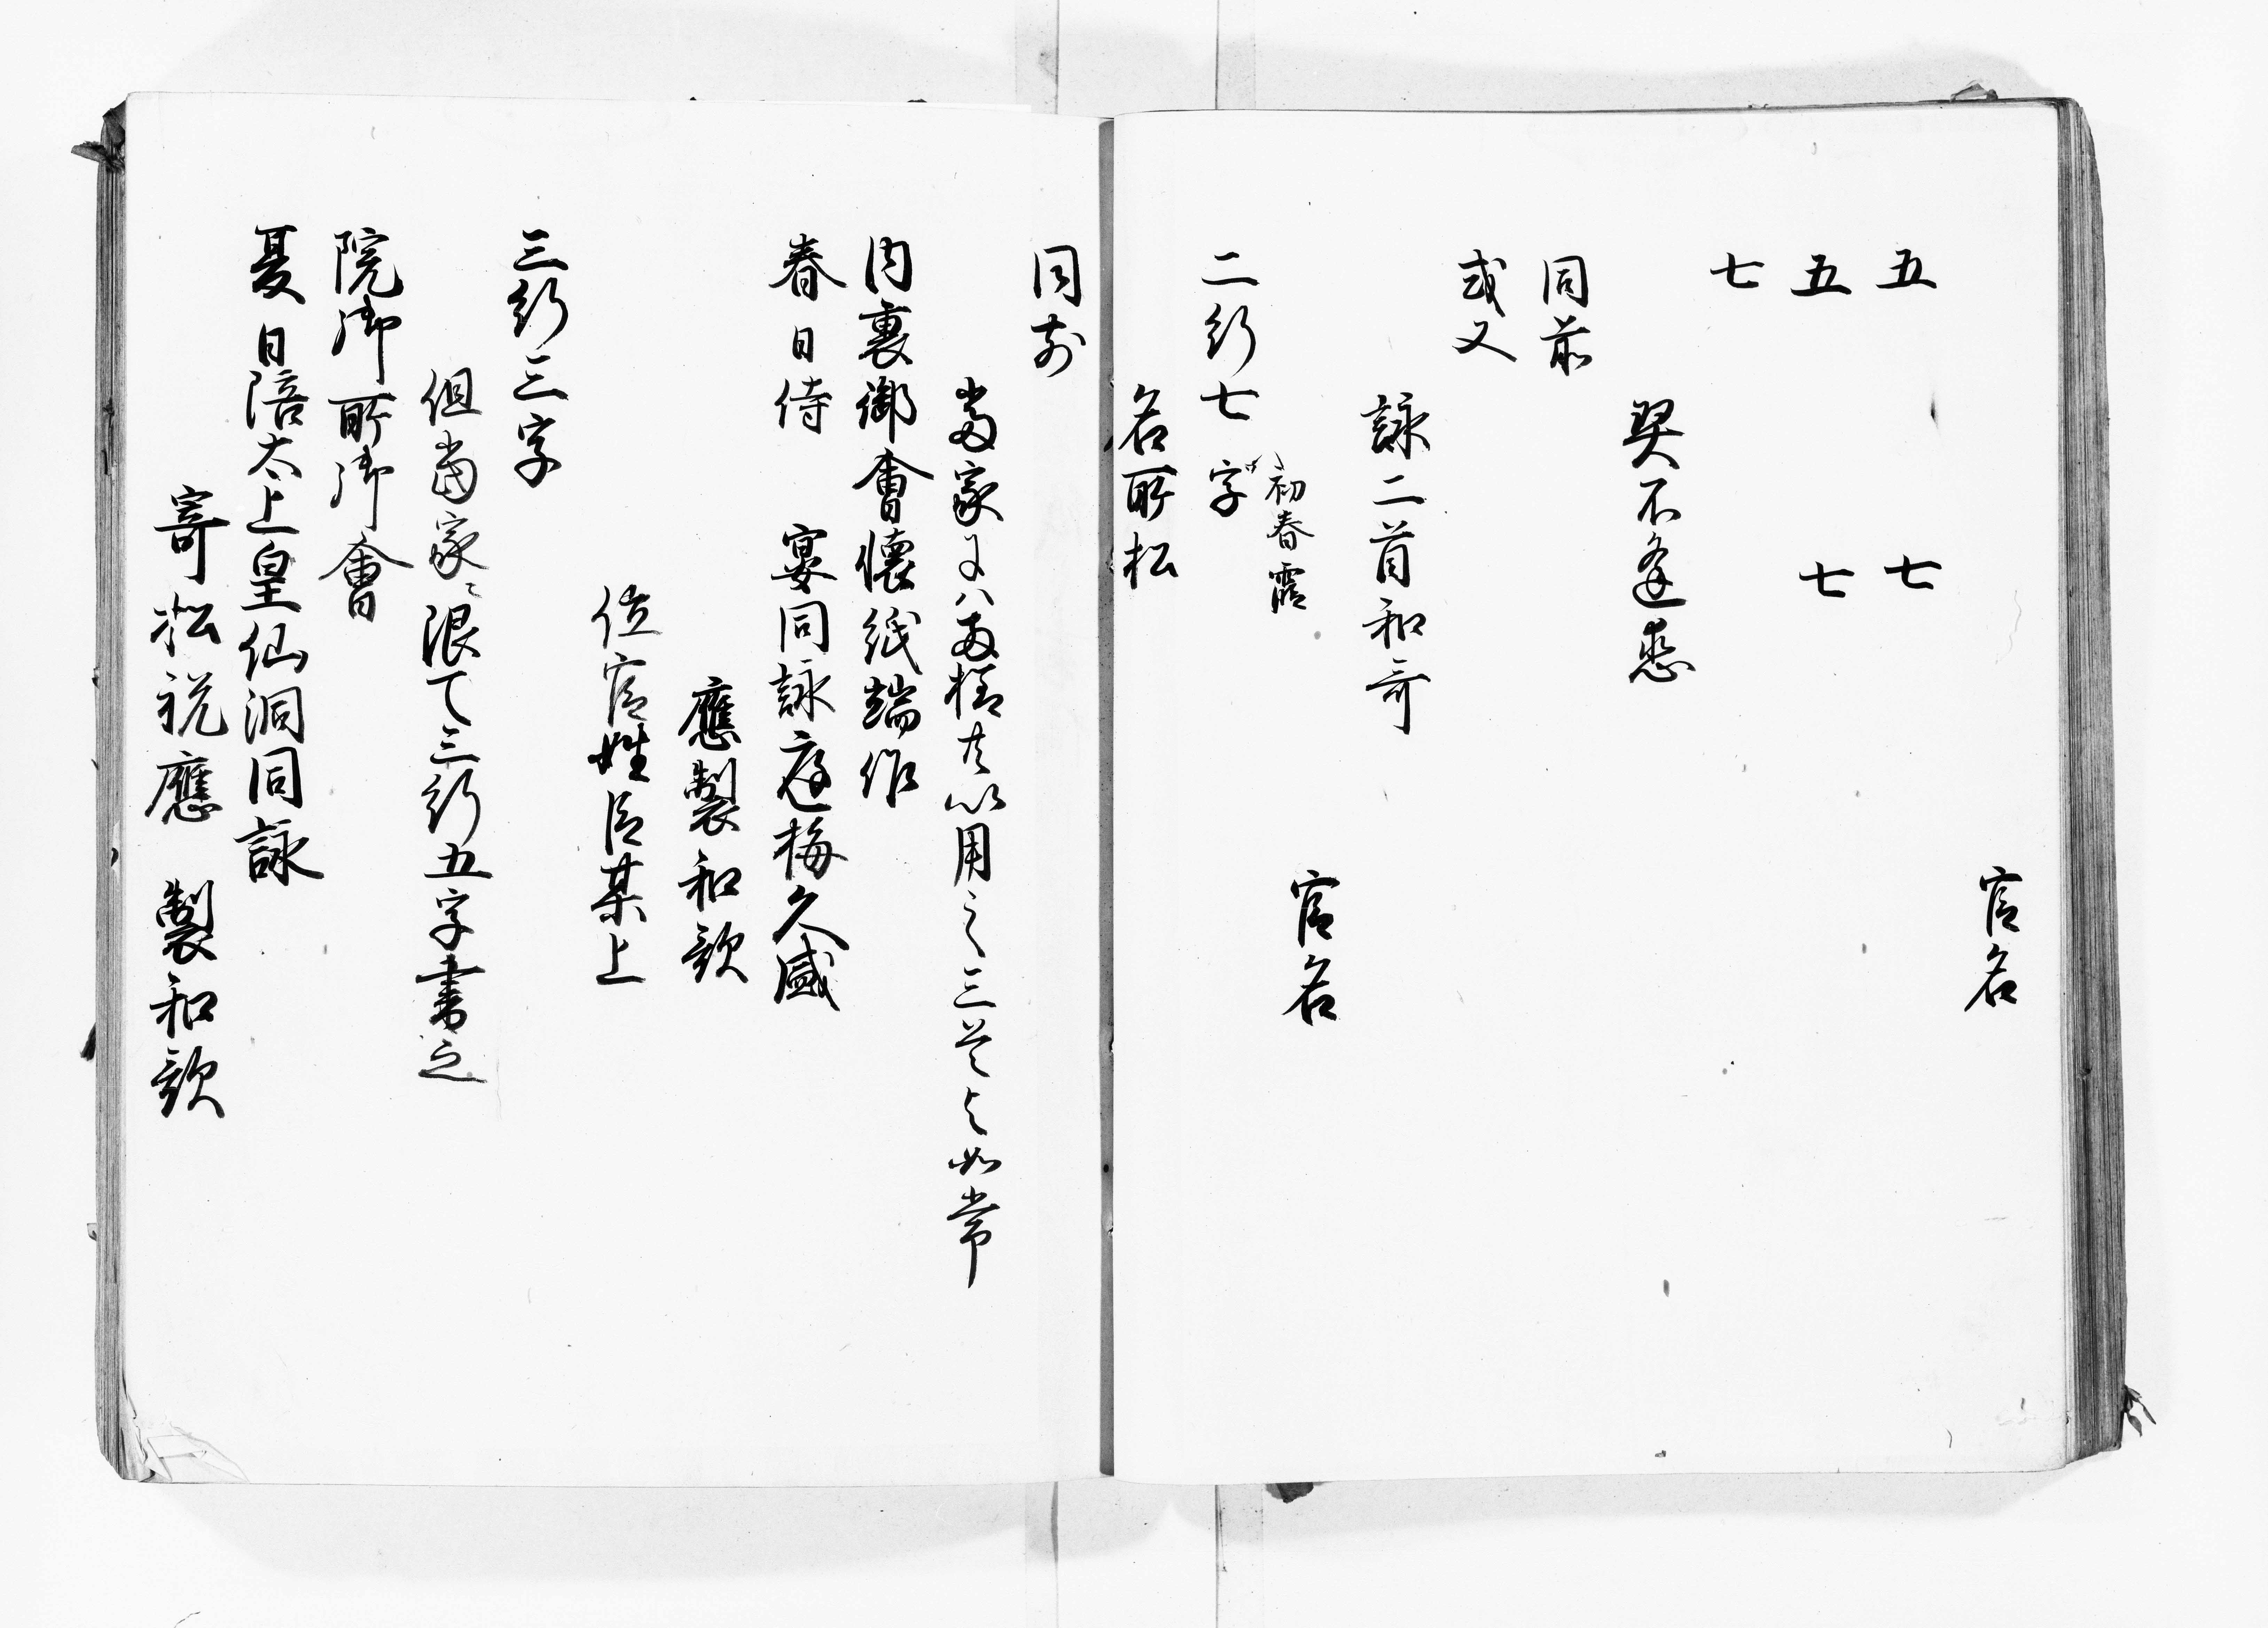 官名
五　七
五　七
七
契不逢恋
同前
或又
詠二首和哥
官名
初春霞
二行七字
名所松
同前
当家には両様共以用之三首も如常
内裏御會懐紙端作
春日侍　宴同詠庭梅久盛
應製和歌
位官姓臣某上
三行三字
但当家ニ限て三行五字書之
院御所御會
夏日陪太上皇仙洞同詠
寄松祝應　製和歌